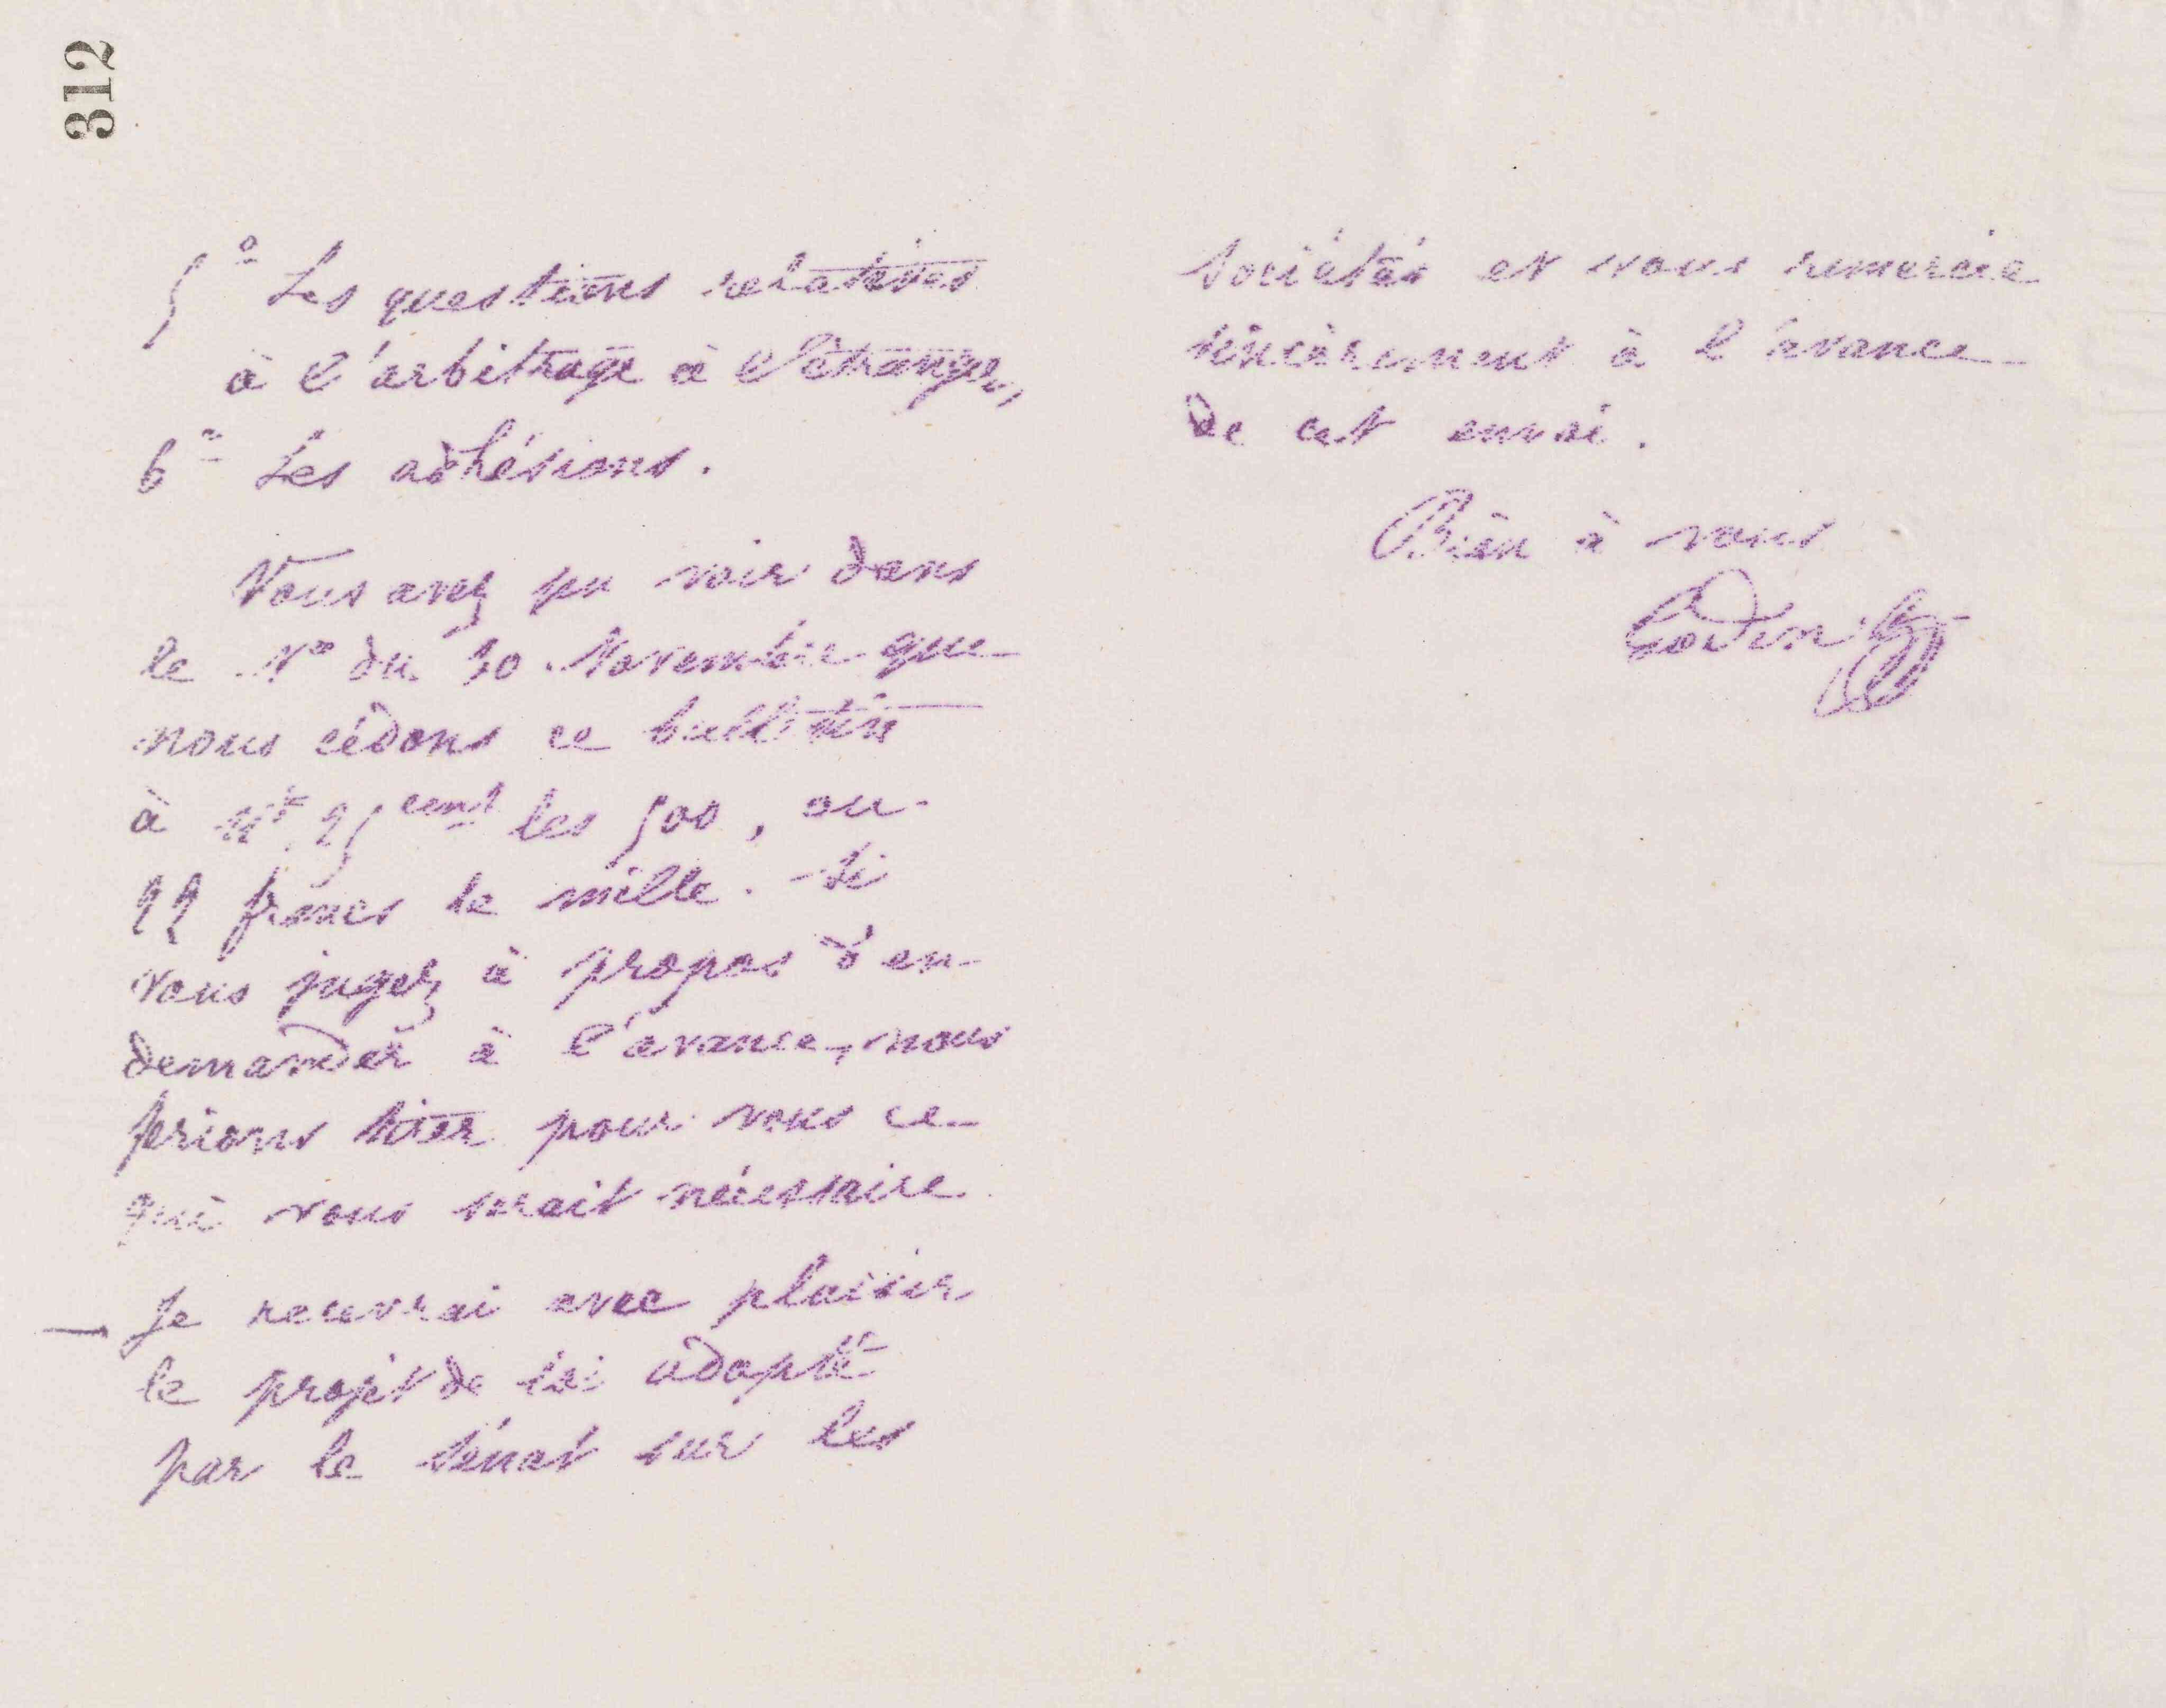 312
5° Les questions relatives
à l'arbitrage à l'étranger,
6° Les adhésions.
Vous avez pu voir dans
le N° du 30 Novembre que
nous cédons ce bulletin
à 11f. 25 cent les 500, ou
22 francs le mille. Si
vous jugez à propos d'en
demander à l'avance, nous
ferions tirer pour vous ce
qui vous serait nécessaire
— Je recevrai avec plaisir
le projet de loi adopté
par le Sénat sur les
Sociétés et vous remercie
sincèrement à l'avance
de cet envoi.
Bien à vous
Godin